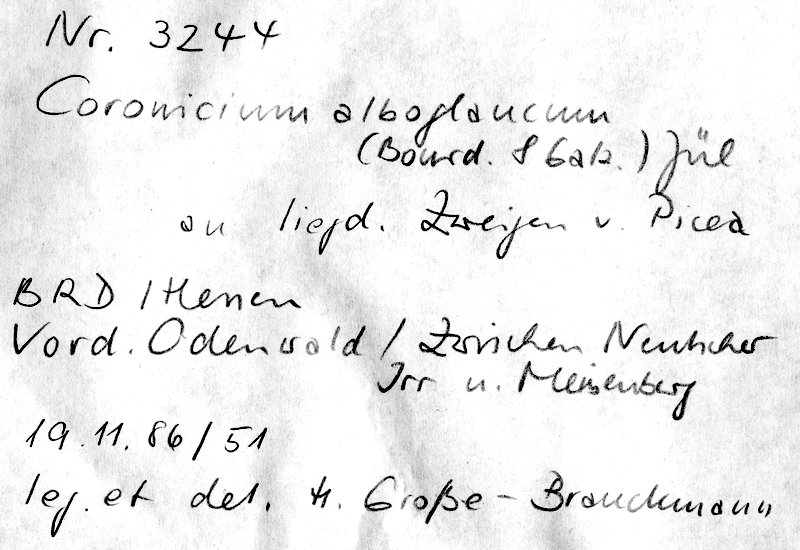 Nr. 3244
Coronicium alboglaucum
(Bourd. & Galz.) Jül
an liegd. Zweigen v. Picea
BRD / Hessen
Vord. Odenwald / Zwischen Neutscher
Irr u. Meisenberg
19.11.86/51
leg. et det. H. Große-Brauckmann